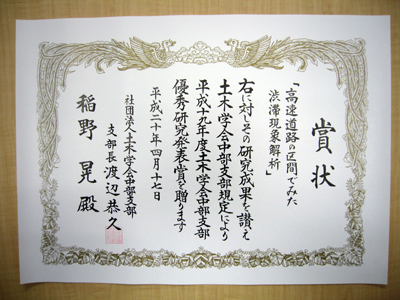 賞状
「高速道路の区間でみた
渋滞現象解析」
右に対しその研究成果を讃え
土木学会中部支部規定により
平成十九年度土木学会中部支部
優秀研究発表賞を贈ります
平成二十年四月十七日
社団法人土木学会中部支部
支部長渡辺恭久
稲野晃殿